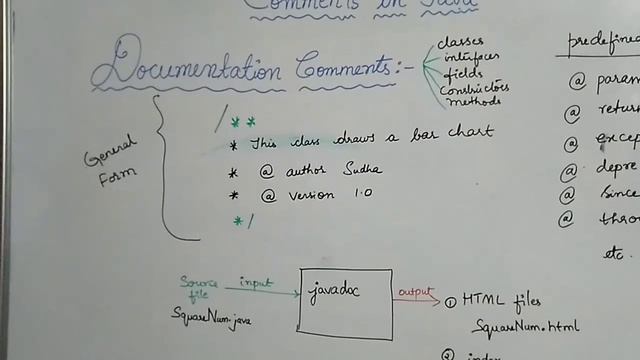 Comments in Java
Documentation Comments:-
classes
interfaces
fields
constructors
methods
General
Form
/**
* This class draws a bar chart
* @ author Sudha
* @ version 1.0
*/
predefined
@ param
@ return
@ excep
@ depre
@ since
@ thro
etc.
Source
file
SquareNum.java
input
javadoc
output
① HTML files
SquareNum.html
② index